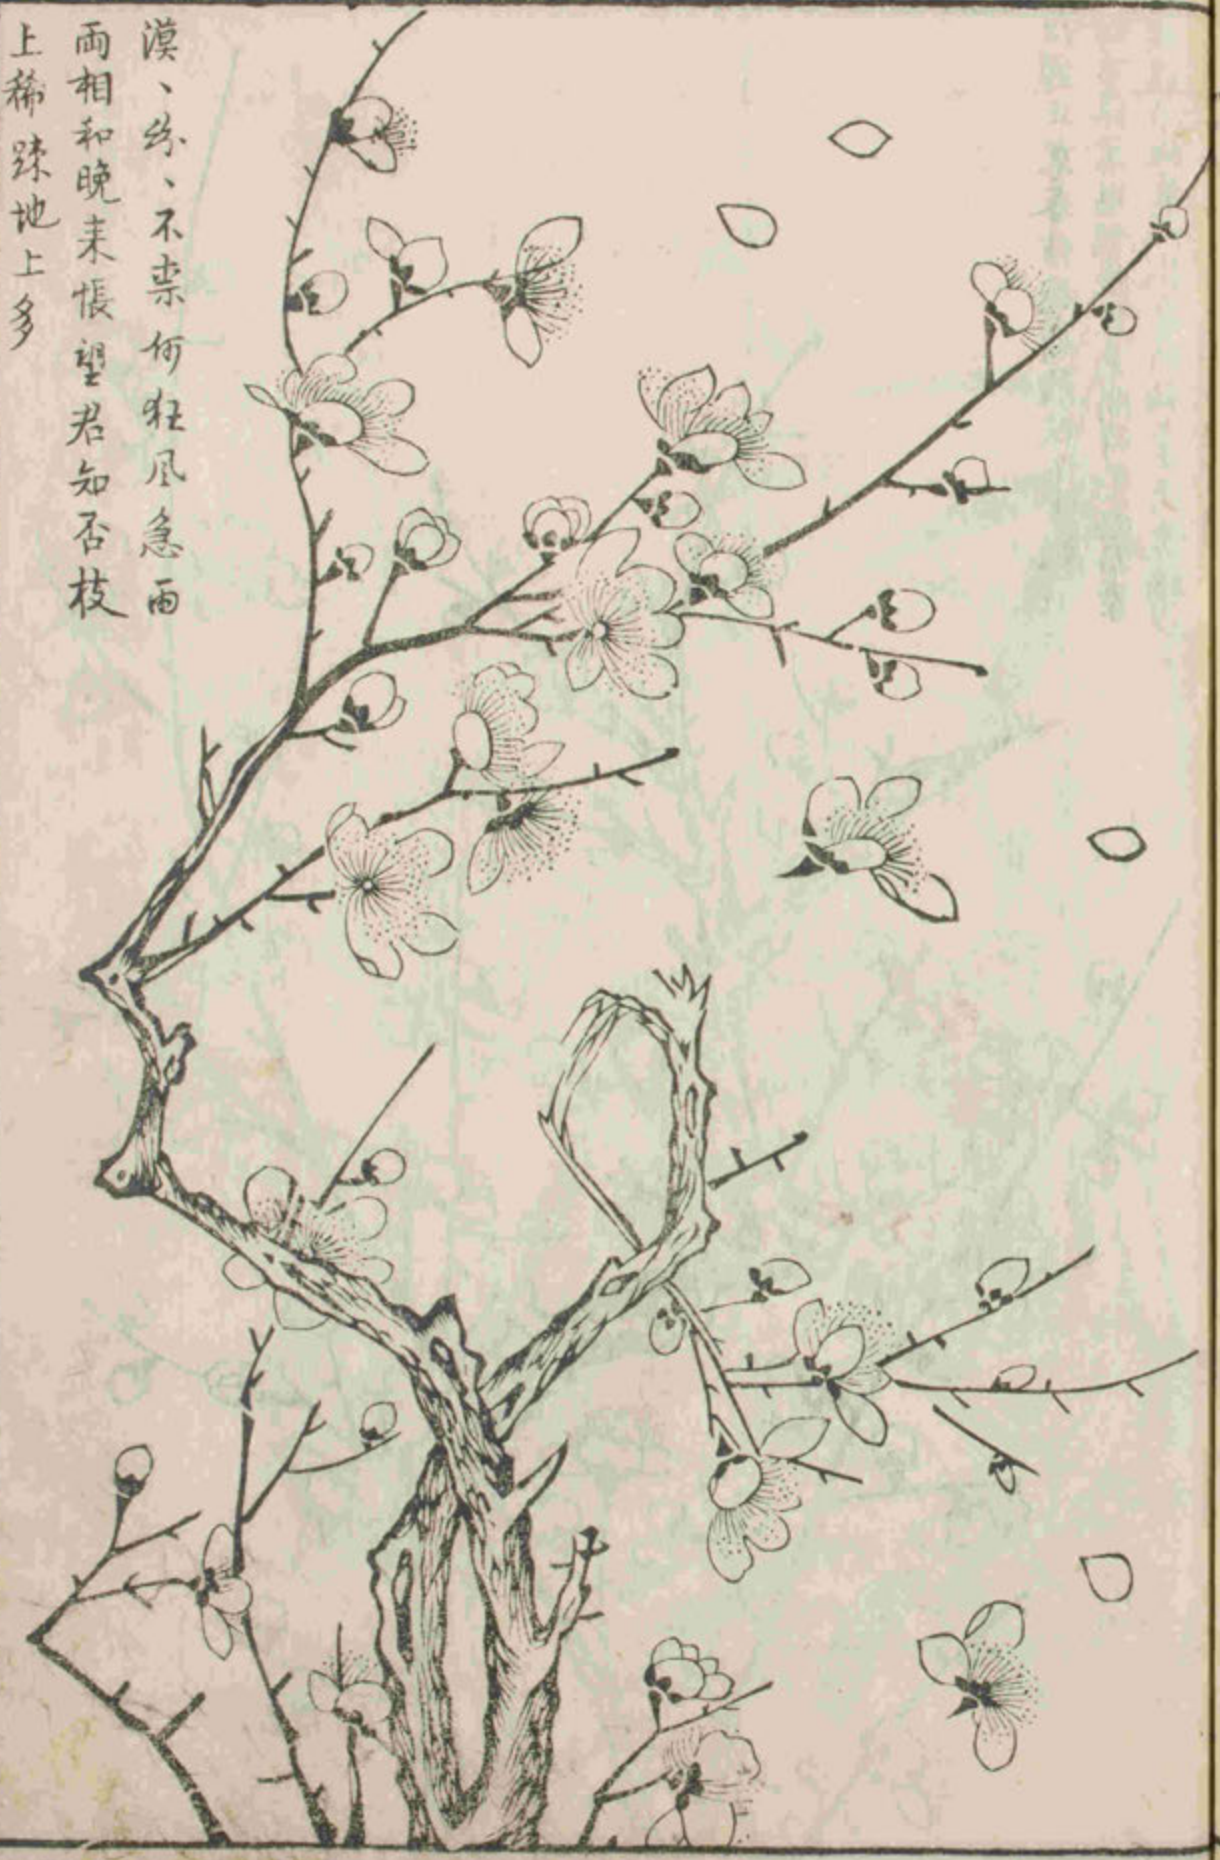 漠、紛、不柰何狂風急雨
兩相和晚来悵望君知否枝
上稀踈地上多